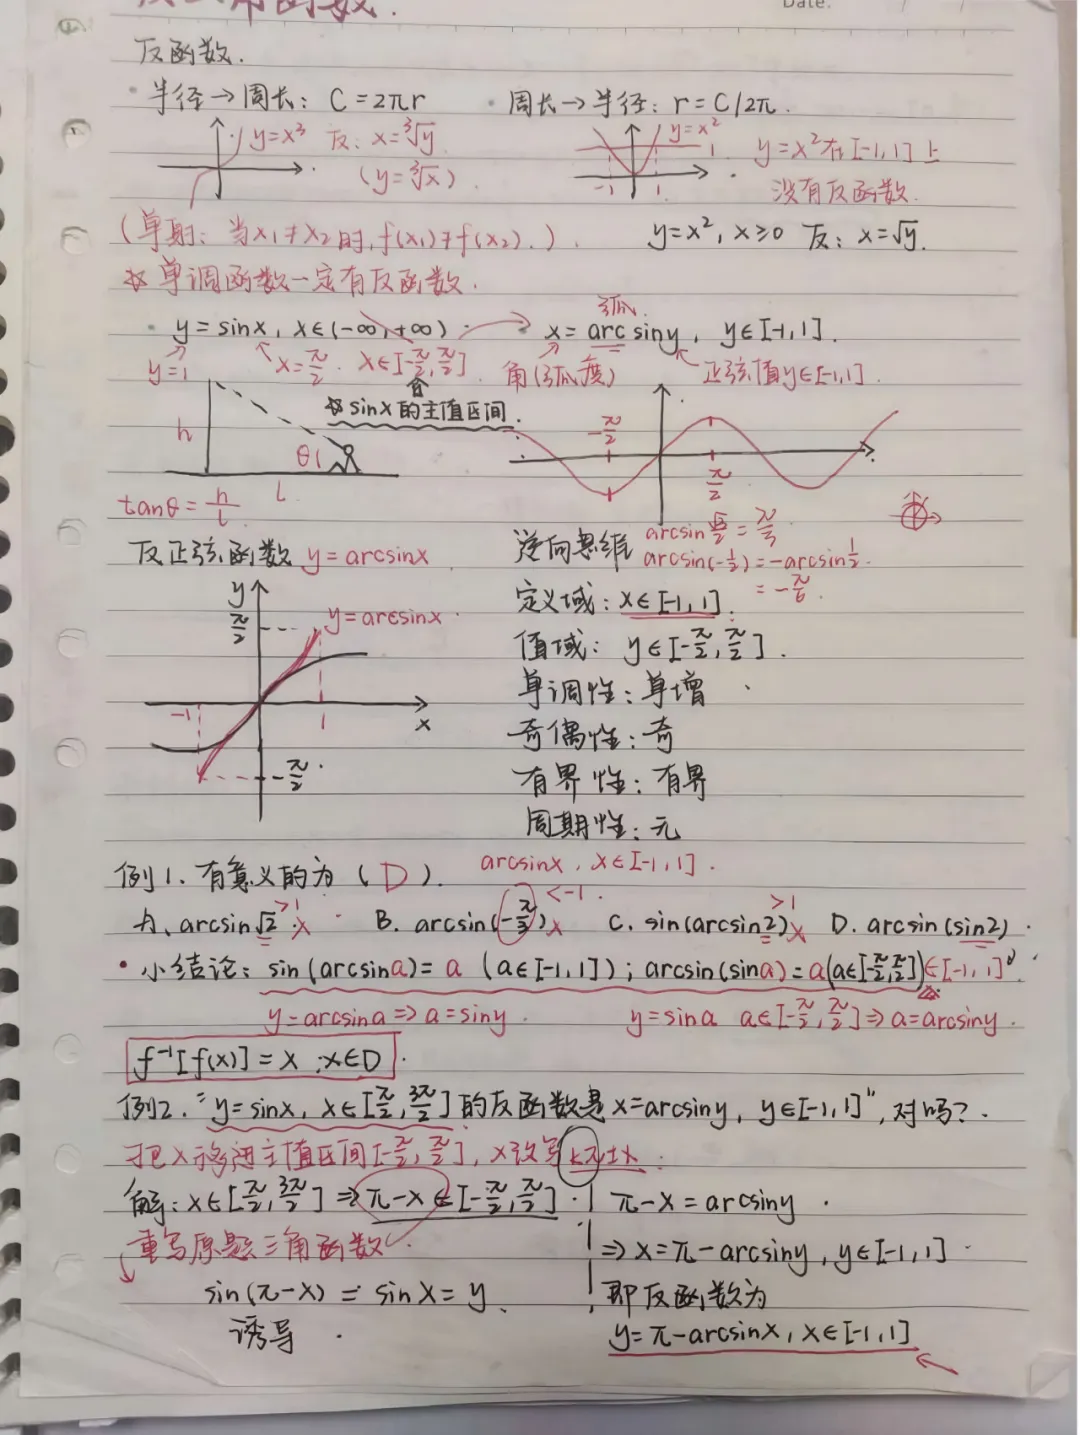 Date.
反函数.
· 半径→周长: C=2πr
· 周长→半径: r=C/2π.
y=x³ 反: x=∛y
(y=∛x).
y=x²
1
-1 1
y=x²在[-1,1]上
没有反函数.
(单射: 当x₁≠x₂时, f(x₁)≠f(x₂).).
y=x², x≥0 反: x=√y.
☆ 单调函数一定有反函数.
· y=sinx, x∈(-∞,+∞). → x=arcsiny, y∈[-1,1].
弧
y=1 x=π/2. x∈[-π/2,π/2]. 角(弧度) 正弦值y∈[-1,1].
☆ sinx的主值区间.
h
θ
l
-π/2
π/2
tanθ=h/l
反正弦函数 y=arcsinx
逆向思维 arcsin√3/2=π/3.
arcsin(-1/2)=-arcsin1/2.
=-π/6.
y
π/2
y=arcsinx.
-1 1 x
-π/2.
定义域: x∈[-1,1].
值域: y∈[-π/2,π/2].
单调性: 单增
奇偶性: 奇
有界性: 有界
周期性: 无
arcsinx, x∈[-1,1].
例1. 有意义的为 (D).
>1 <-1. >1
A. arcsin√2 x B. arcsin(-π/3) x C. sin(arcsin2) x D. arcsin(sin2).
• 小结论: sin(arcsina)=a (a∈[-1,1]); arcsin(sina)=a(a∈[-π/2,π/2]) ∈[-1,1]
y=arcsina⇒a=siny. y=sina a∈[-π/2,π/2]⇒a=arcsiny.
f⁻¹[f(x)]=x, x∈D.
例2. "y=sinx, x∈[π/2,3π/2]的反函数是x=arcsiny, y∈[-1,1]", 对吗?.
把x移进主值区间[-π/2,π/2], x改写kπ±x.
解: x∈[π/2,3π/2]⇒π-x∈[-π/2,π/2].
重写原题三角函数
sin(π-x)=sinx=y.
诱导.
π-x=arcsiny
⇒x=π-arcsiny, y∈[-1,1].
即反函数为
y=π-arcsinx, x∈[-1,1]